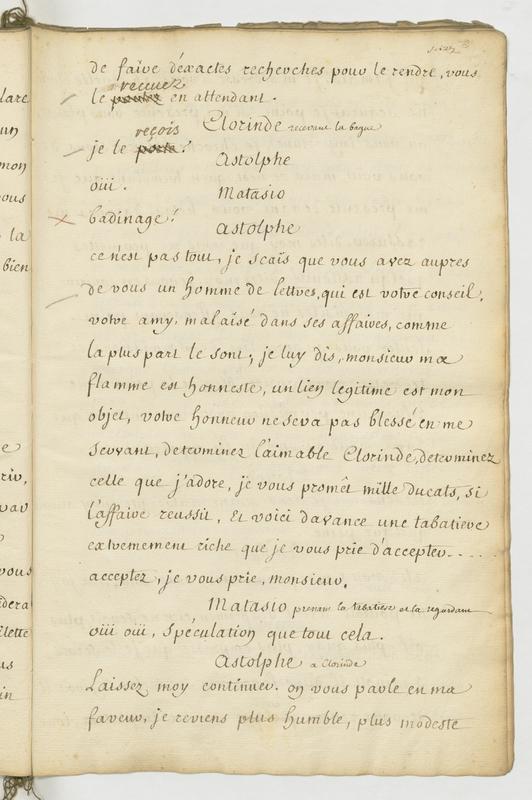 de faire déxactes recherches pour le rendre, vous
recevez
le en attendant.
Clorinde recevant la bague
reçois
je le porte?
Astolphe
oüi.
Matasio
badinage!
Astolphe
ce n'est pas tout, je scais que vous avez aupres
de vous un homme de lettres, qui est votre conseil,
votre amy, malaisé dans ses affaires, comme
la plus part le sont; je luy dis, monsieur ma
flamme est honneste, un lien legitime est mon
objet, votre honneur ne sera pas blessé en me
servant, determinez l'aimable Clorinde, determinez
celle que j'adore, je vous promêt mille ducats, si
l'affaire reussit, Et voici d'avance une tabatiere
extremement riche que je vous prie d'accepter.....
acceptez, je vous prie, monsieur.
Matasio prenant la tabatiere et la regardant
oüi oüi, spéculation que tout cela.
Astolphe a Clorinde
Laissez moy continuer. on vous parle en ma
faveur, je reviens plus humble, plus modeste
lare
un
mon
ous
la
bien
e
riv,
par
vous
dera
lette
us
in